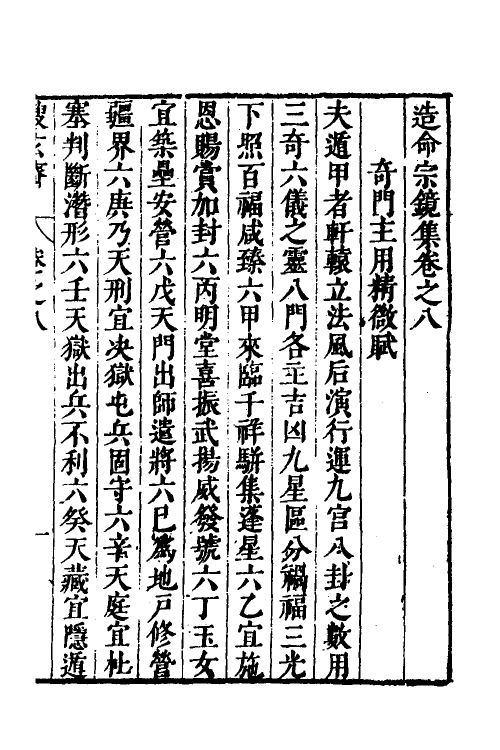 造命宗鏡集卷之八
奇門主用精微賦
夫遁甲者軒轅立法風后演行運九宮八卦之數用
三奇六儀之靈八門各主吉凶九星區分禍福三光
下照百福咸臻六甲來臨千祥駢集蓬星六乙宜施
恩賜賞加封六丙明堂喜振武揚威發號六丁玉女
宜築壘安營六戊天門出師遣將六巳爲地戸修營
疆界六庚乃天刑宜决獄屯兵固守六辛天庭宜杜
塞判斷潛形六壬天獄出兵不利六癸天藏宜隱遁
卷之八
一